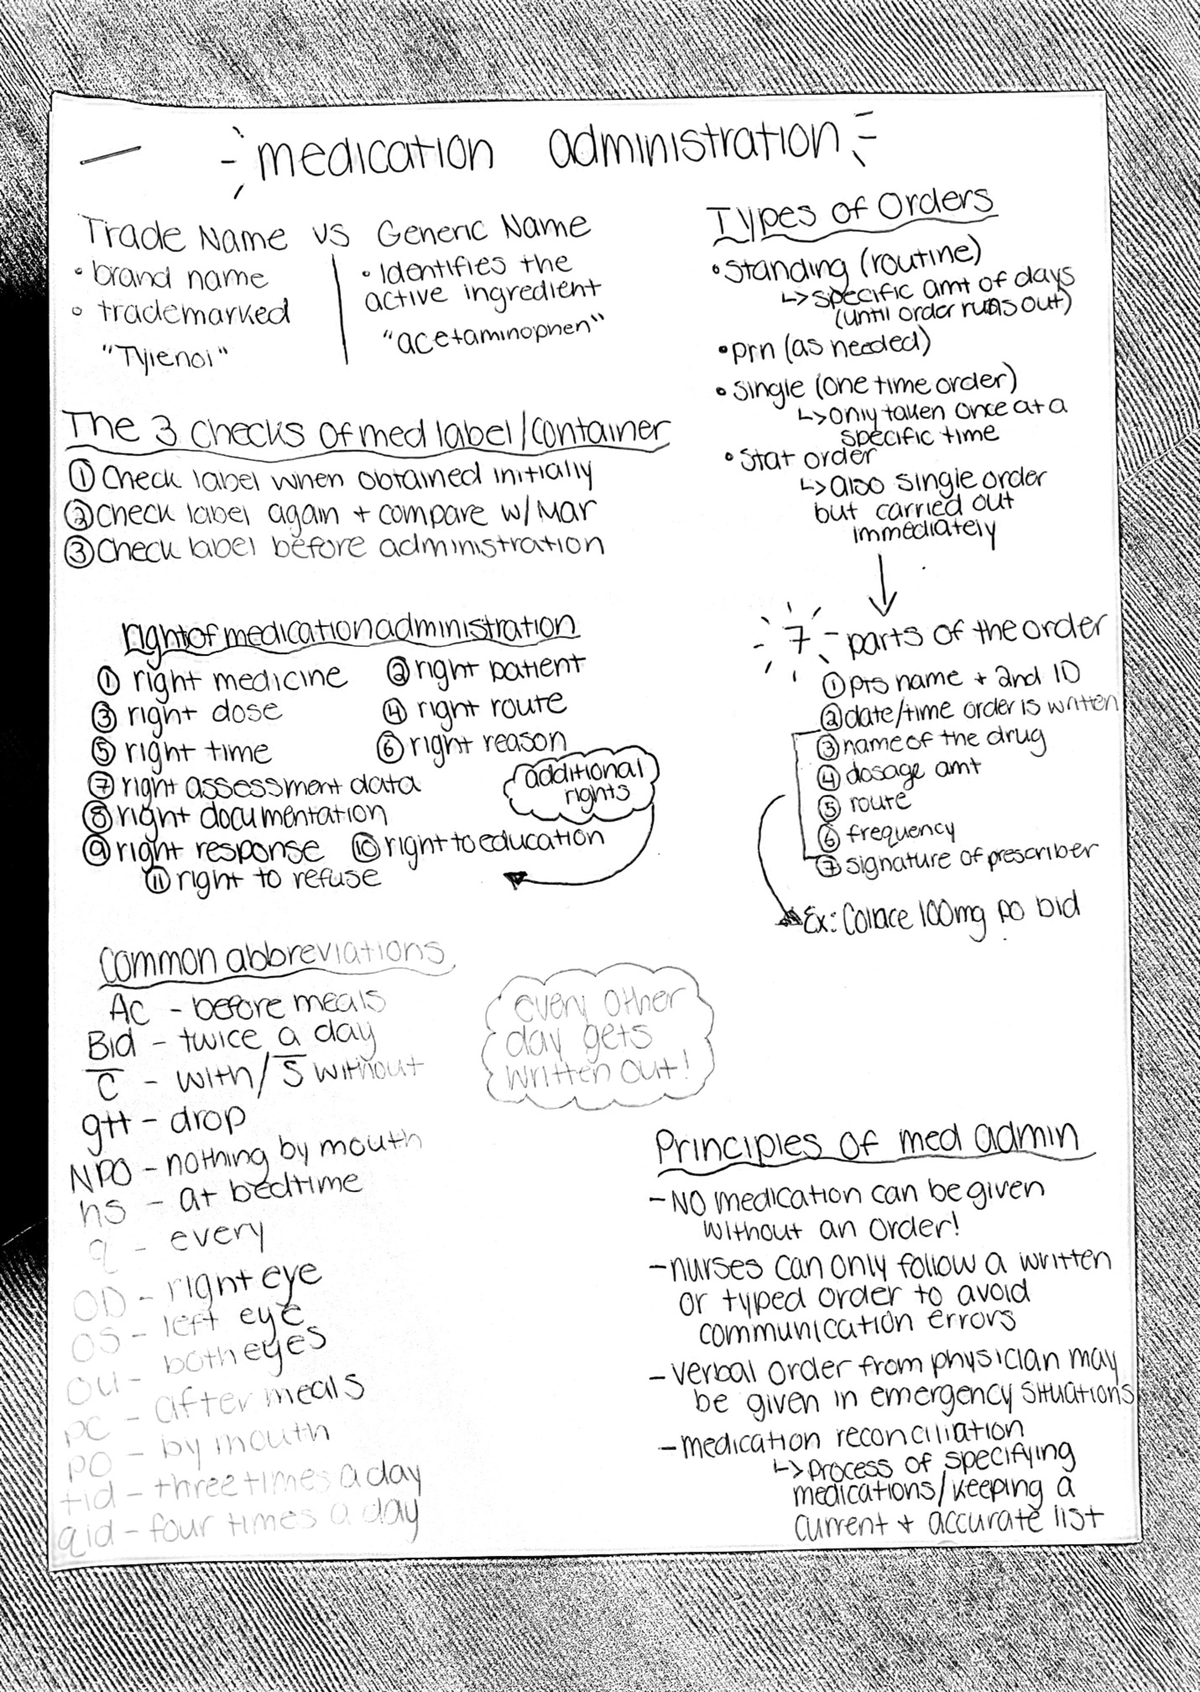 medication administration
Trade Name vs Generic Name
• brand name
• trademarked
"Tylenol"
• Identifies the
active ingredient
"acetaminophen"
The 3 Checks of med label/container
① Check label when obtained initially
② Check label again + compare w/ Mar
③ Check label before administration
right of medication administration
① right medicine ② right patient
③ right dose ④ right route
⑤ right time ⑥ right reason
⑦ right assessment data
⑧ right documentation
⑨ right response ⑩ right to education
⑪ right to refuse
additional
rights
Common abbreviations
Ac - before meals
Bid - twice a day
c̅ - with / s̅ without
gtt - drop
NPO - nothing by mouth
hs - at bedtime
q - every
OD - right eye
OS - left eye
OU - both eyes
pc - after meals
po - by mouth
tid - three times a day
qid - four times a day
every other
day gets
written out!
Types of Orders
• Standing (routine)
↳ specific amt of days
(until order runs out)
• prn (as needed)
• Single (one time order)
↳ only taken once at a
specific time
• Stat order
↳ also single order
but carried out
immediately
7 - parts of the order
① pts name + 2nd ID
② date/time order is written
③ name of the drug
④ dosage amt
⑤ route
⑥ frequency
⑦ signature of prescriber
Ex: Colace 100mg po bid
Principles of med admin
- No medication can be given
without an order!
- nurses can only follow a written
or typed order to avoid
communication errors
- verbal order from physician may
be given in emergency situations
- medication reconciliation
↳ process of specifying
medications/keeping a
current + accurate list